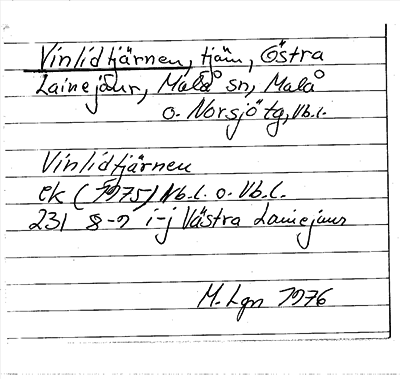 Vinlidtjärnen, tjärn, Östra
Lainejaur, Malå sn, Malå
o. Norsjö tg, Vb.l.
Vinlidtjärnen
ek (1975) Vb.l. o. Vb.l.
231 8-9 i-j Västra Lainejaur
M. Lgn 1976